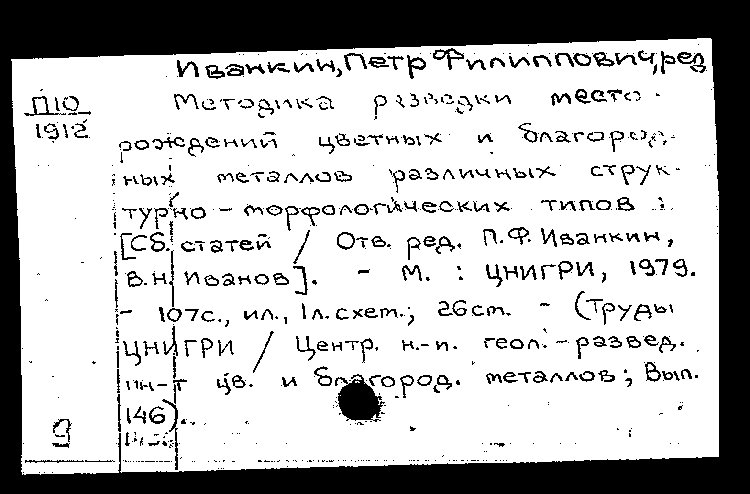 Иванкин, Петр Филиппович, ред
П10
1912
Методика разведки место-
рождений цветных и благород-
ных металлов различных струк-
турно-морфологических типов :
[Сб. статей / Отв. ред. П.Ф. Иванкин,
В.Н. Иванов]. - М. : ЦНИГРИ, 1979.
- 107с., ил., 1л. схем.; 26см. - (Труды
ЦНИГРИ / Центр. н.-и. геол.-развед.
ин-т цв. и благород. металлов; Вып.
146).
9